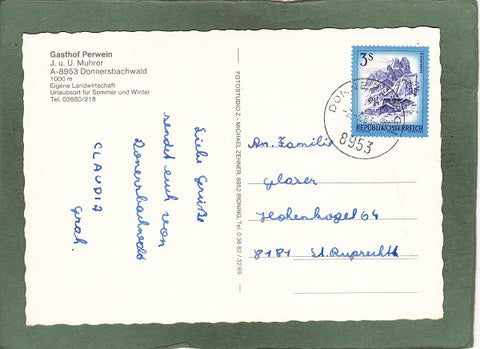 Gasthof Perwein
J. u. U. Muhrer
A-8953 Donnersbachwald
1000 m
Eigene Landwirtschaft
Urlaubsort für Sommer und Winter
Tel. 03680/218
FOTOSTUDIO Z. - MICHAEL ZEHNER, 8952 IRDNING, Tel. 0 36 82 / 32 69
Liebe Grüße
sendet euch von
Donnersbachwald
CLAUDIA
Grah.
3S
REPUBLIK ÖSTERREICH
8953
An Familie
Glaser
Hohenkogel 64
8181 St. Ruprecht